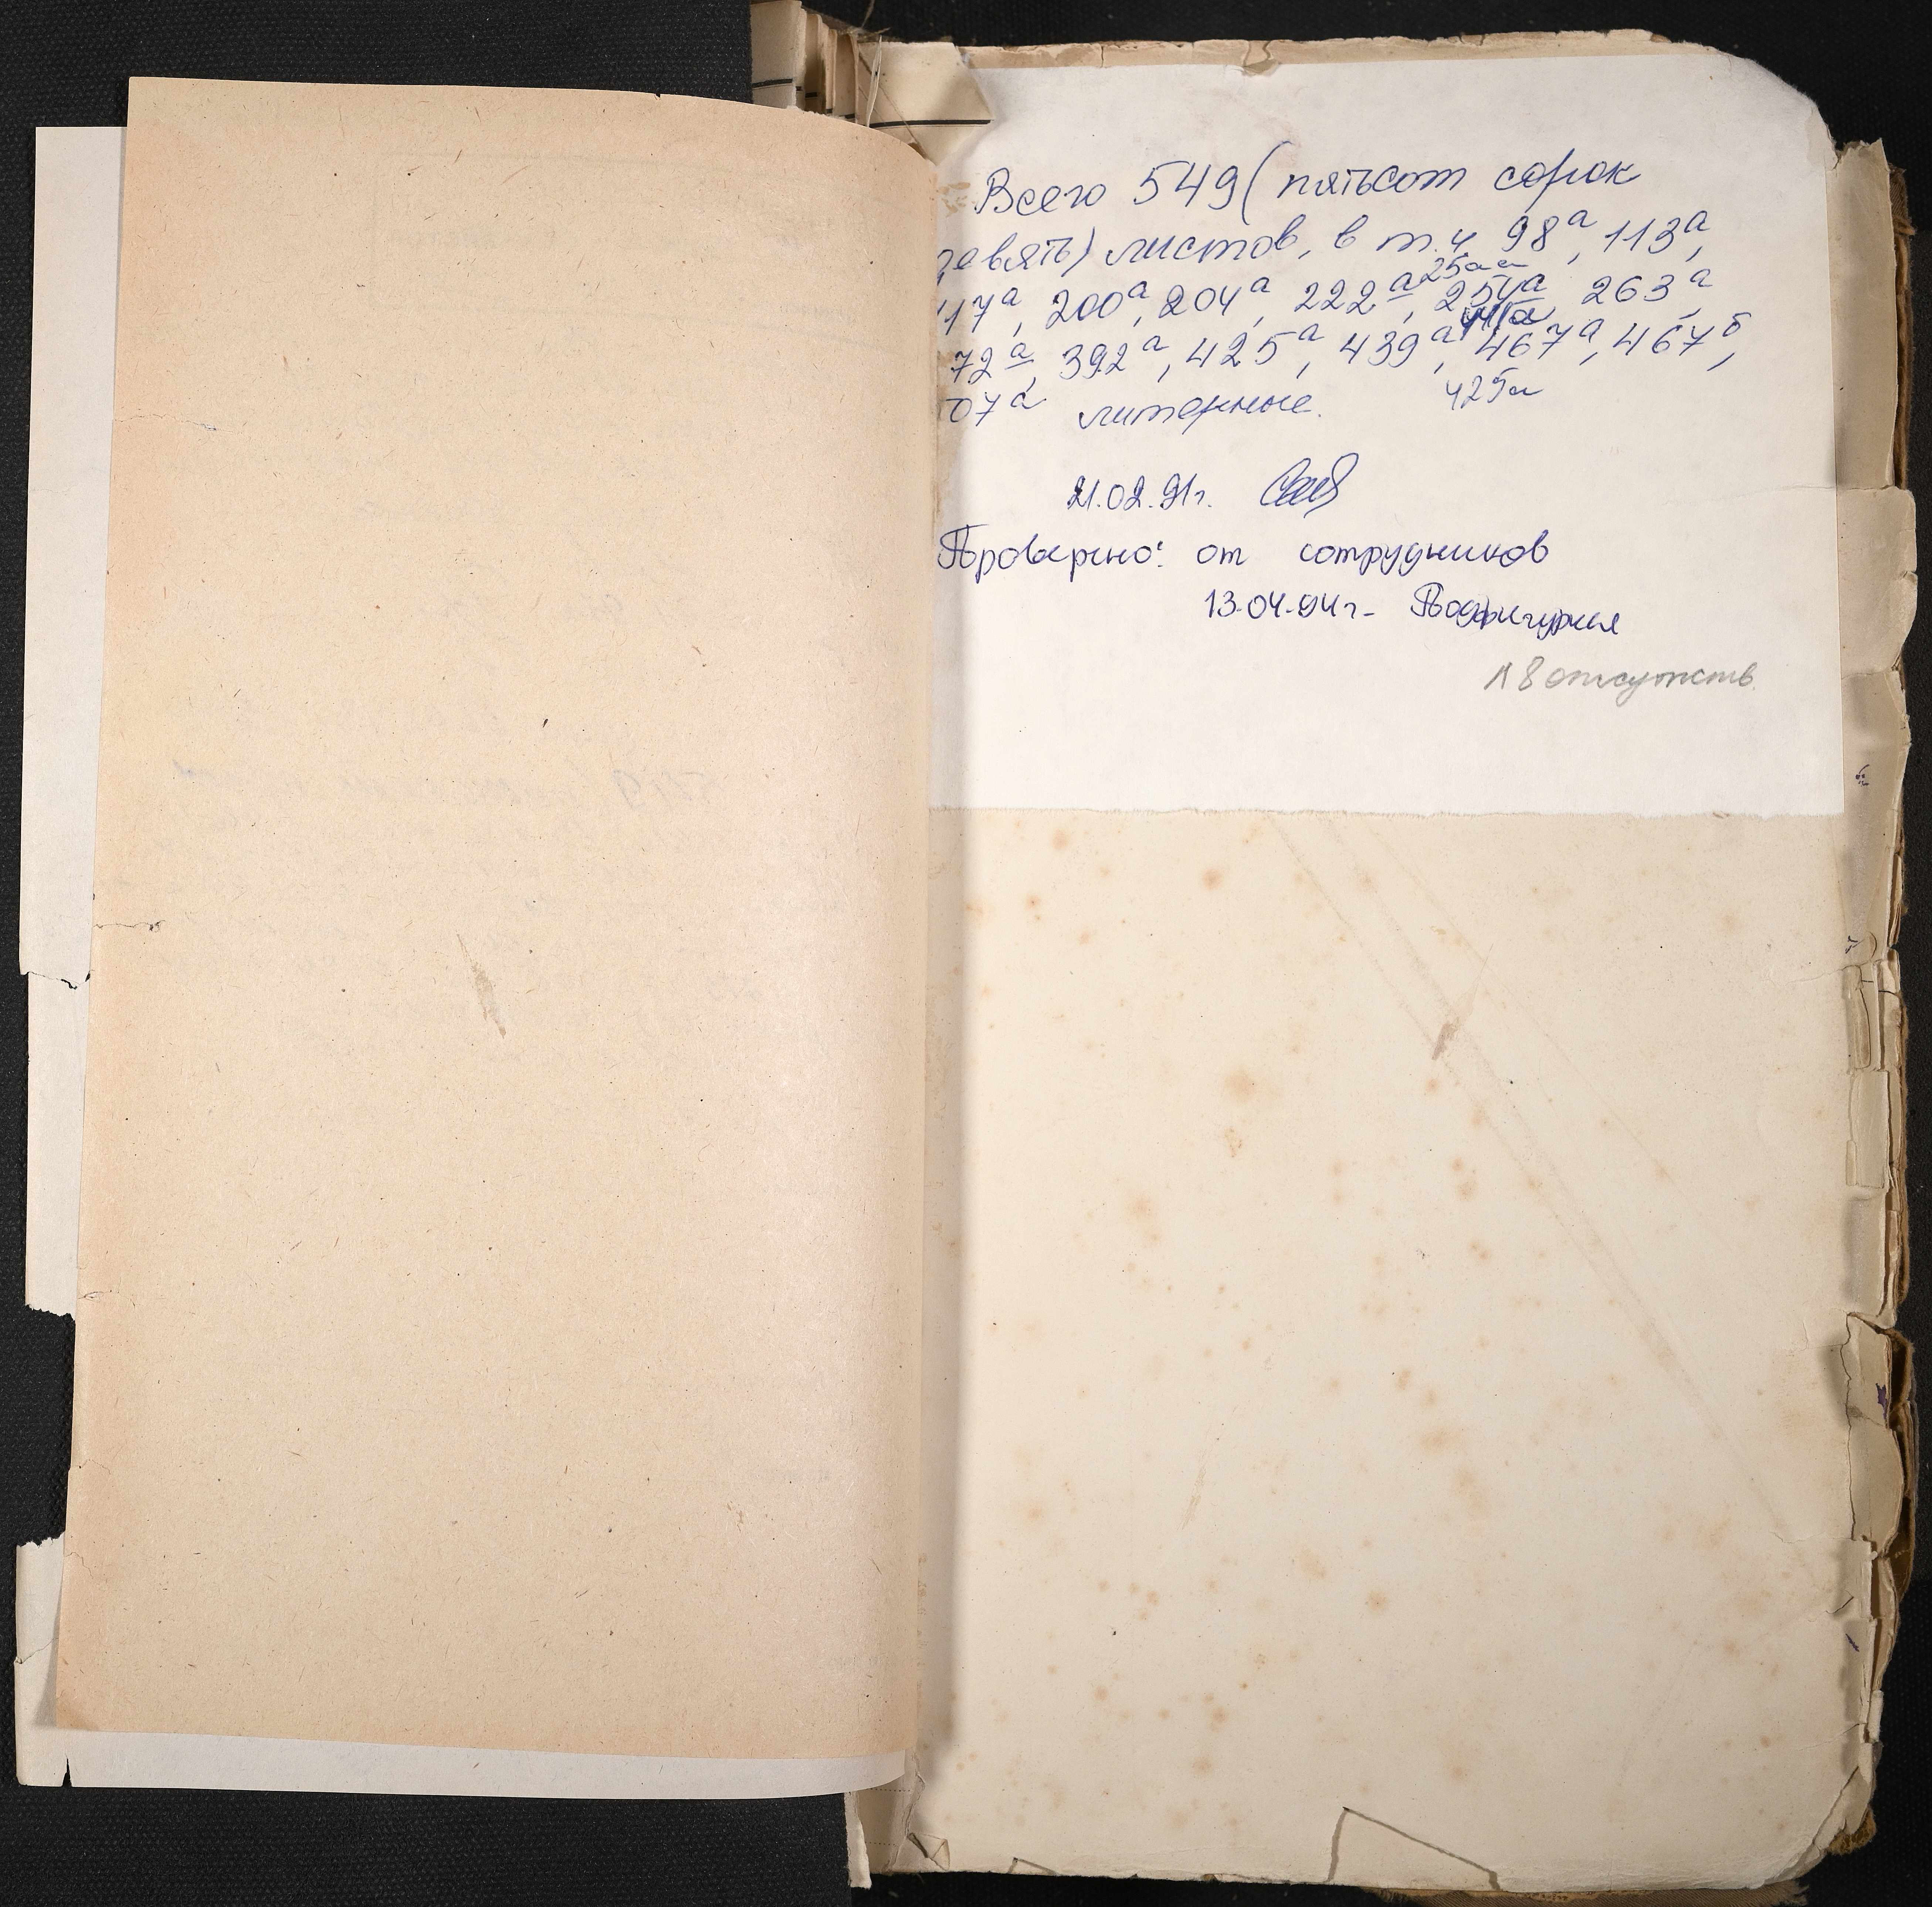 Всего 549 (пятьсот сорок
девять) листов, в т.ч 98а, 113а,
25аа
117а, 200а, 204а, 222а, 254а, 263а,
72а, 392а, 425а, 439а, 467а, 467б,
07а литерные. 425а
21.02.91г.
Проверено: от сотрудников
13.04.94г-
л 8 отсутств.